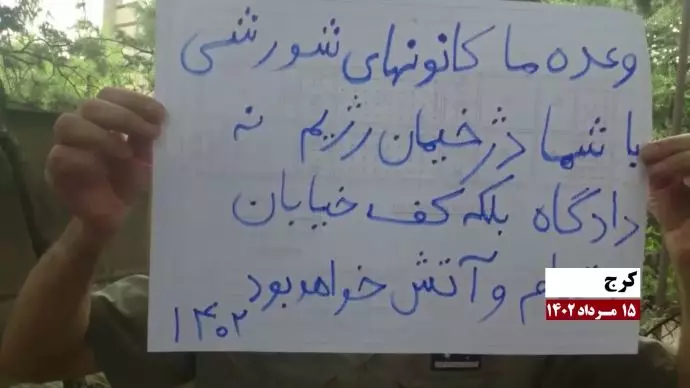 وعده ما کانونهای شورشی
با شما دژخیمان رژیم نه
دادگاه بلکه کف خیابان
و آتش خواهد بود
۱۴۰۲
کرج
۱۵ مرداد ۱۴۰۲